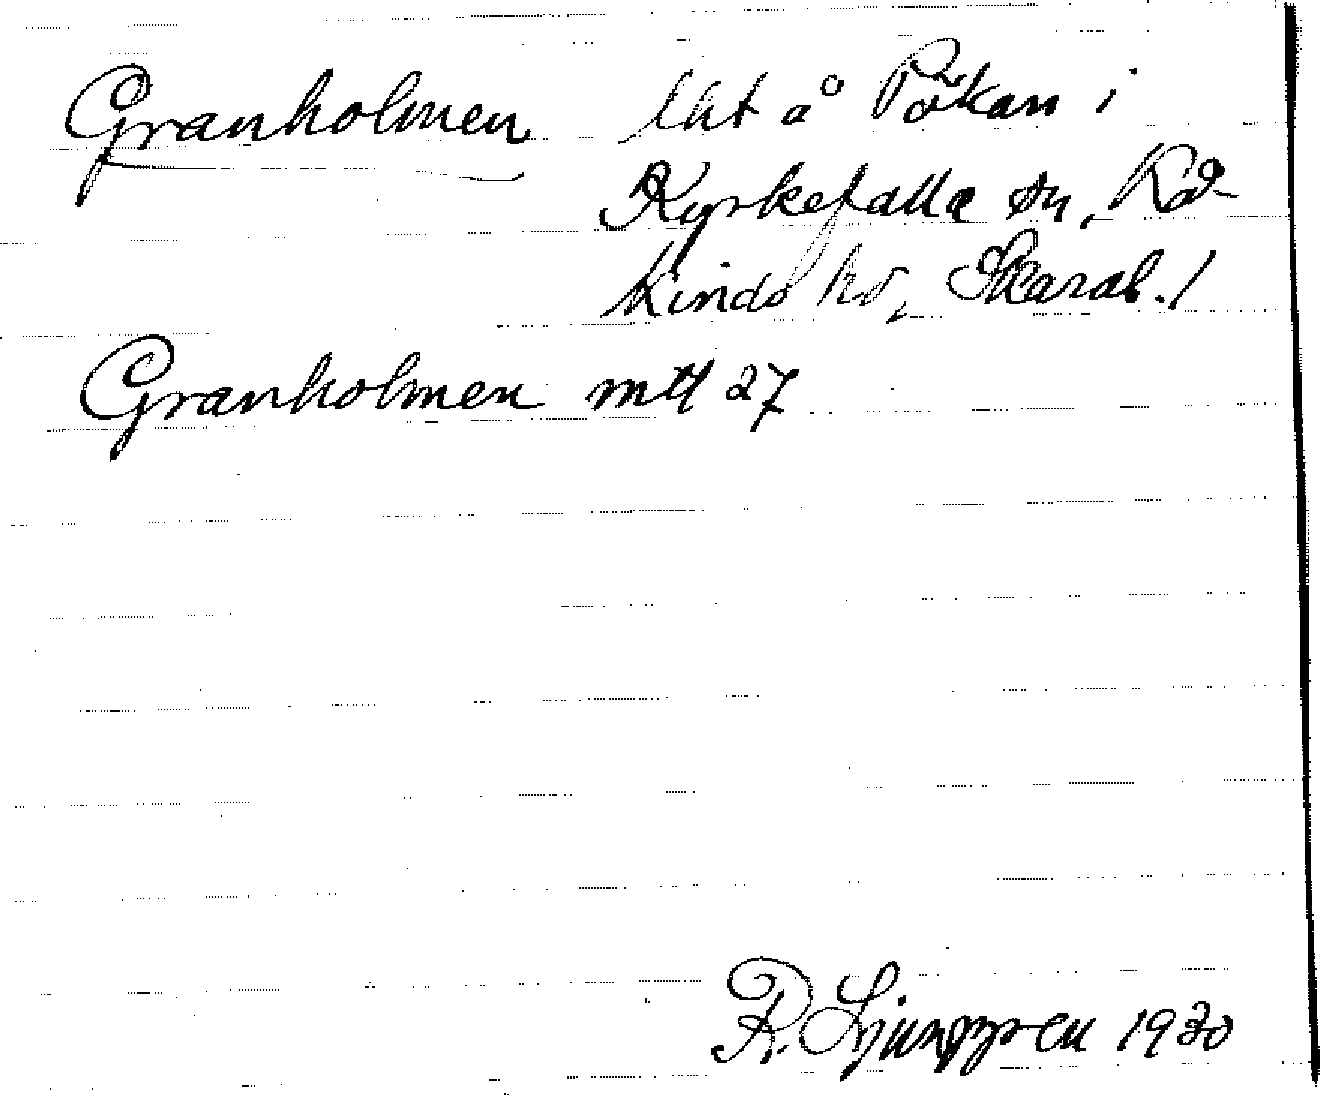 Granholmen lht å Påkan i
Kyrkefalla sn, Kå-
kinds hd, Skarab. l
Granholmen mtl 27
R. Ljunggren 1930